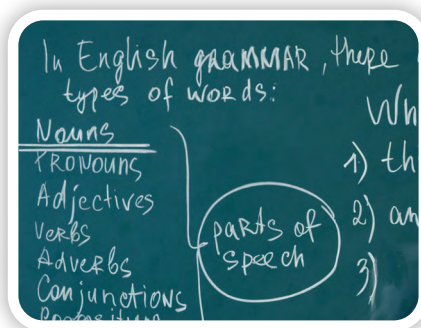 In English grammar, there
types of words:
Nouns
Pronouns
Adjectives
Verbs
Adverbs
Conjunctions
parts of
speech
Wh
1) th
2) an
3)